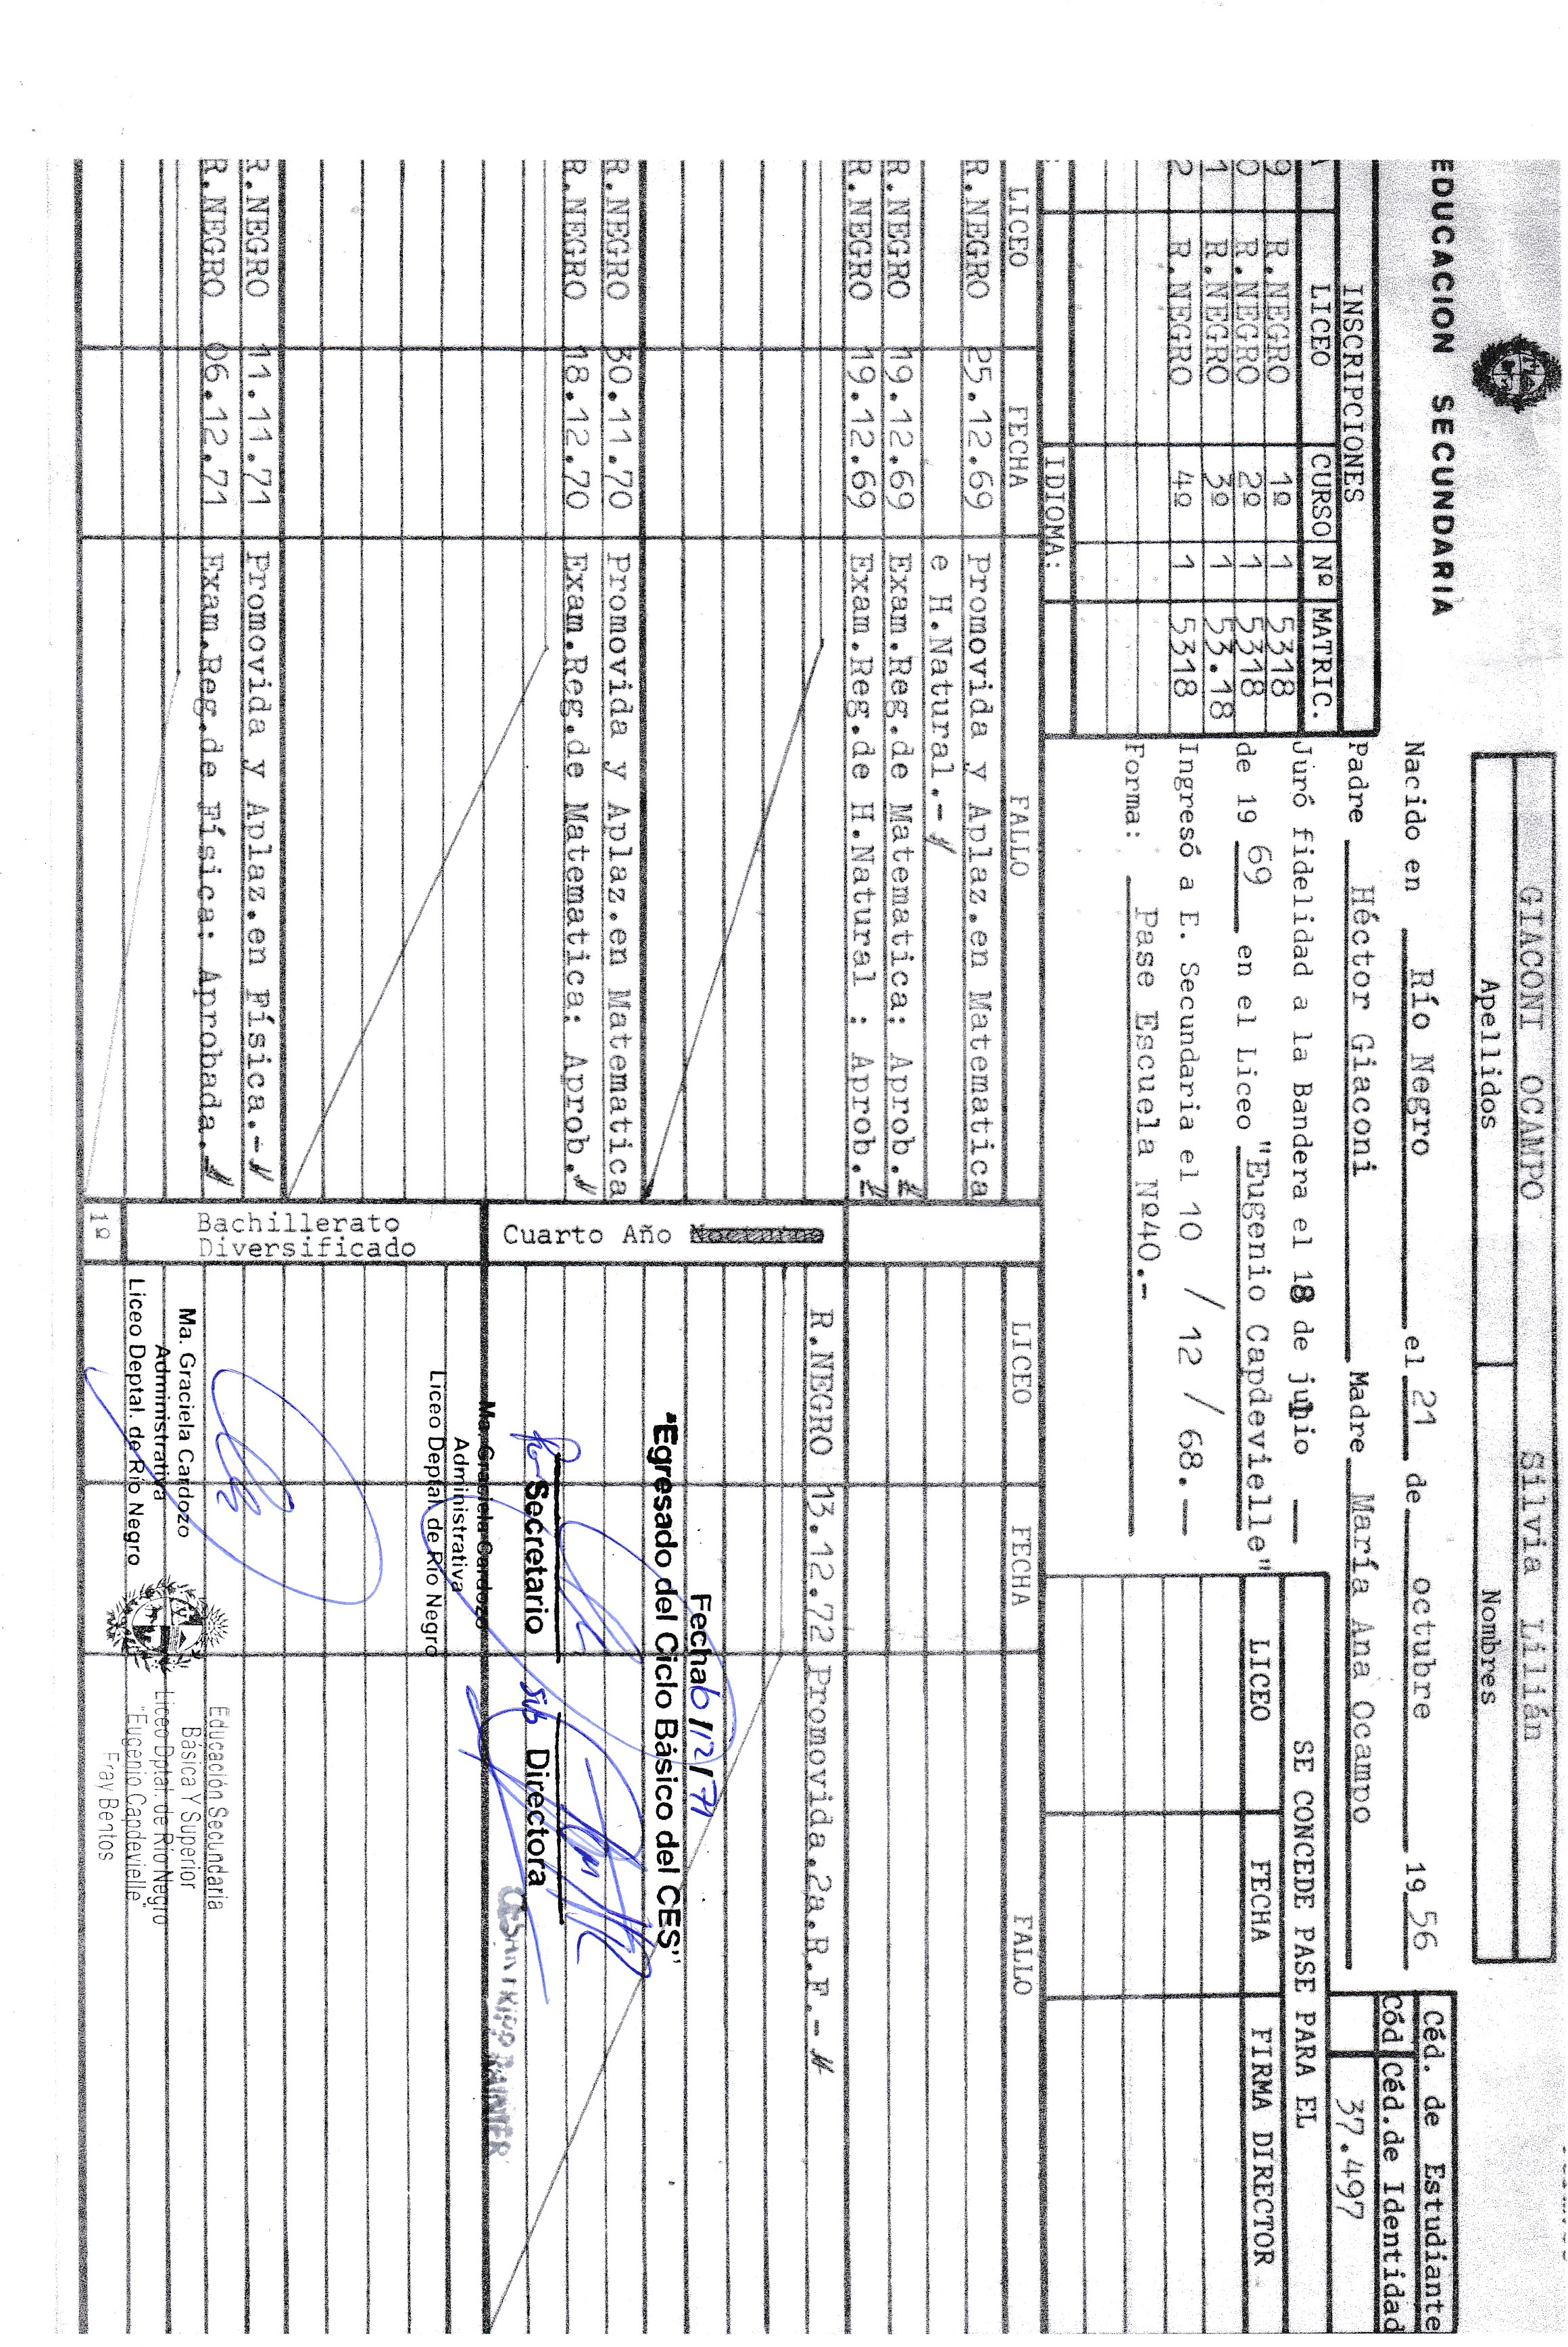 EDUCACION SECUNDARIA
GIACONI OCAMPO Silvia Lilián
Apellidos Nombres
Céd. de Estudiante
Cód Céd.de Identidad
37.497
Nacido en Río Negro el 21 de octubre 19 56
Padre Héctor Giaconi Madre María Ana Ocampo
Juró fidelidad a la Bandera el 18 de junio
de 19 69 en el Liceo "Eugenio Capdevielle"
Ingresó a E. Secundaria el 10 / 12 / 68.-
Forma: Pase Escuela Nº40.-
INSCRIPCIONES
LICEO CURSO Nº MATRIC.
9 R.NEGRO 1º 1 5318
0 R.NEGRO 2º 1 5318
1 R.NEGRO 3º 1 53.18
2 R.NEGRO 4º 1 5318
IDIOMA:
SE CONCEDE PASE PARA EL
LICEO FECHA FIRMA DIRECTOR
LICEO FECHA FALLO
R.NEGRO 25.12.69 Promovida y Aplaz.en Matematica
e H.Natural.-
R.NEGRO 19.12.69 Exam.Reg.de Matematica: Aprob.
R.NEGRO 19.12.69 Exam.Reg.de H.Natural : Aprob.
R.NEGRO 30.11.70 Promovida y Aplaz.en Matematica
R.NEGRO 18.12.70 Exam.Reg.de Matematica: Aprob.
R.NEGRO 11.11.71 Promovida y Aplaz.en Física.-
R.NEGRO 06.12.71 Exam.Reg.de Física: Aprobada.
Cuarto Año Nocturno
Bachillerato
Diversificado
1º
LICEO FECHA FALLO
R.NEGRO 13.12.72 Promovida.2a.R.F.-
Fecha 6/12/71
"Egresado del Ciclo Básico del CES"
Secretario Sub Directora
Ma. Graciela Cardozo
Administrativa
Liceo Deptal. de Río Negro
Ma. Graciela Cardozo
Administrativa
Liceo Deptal. de Río Negro
Educación Secundaria
Básica Y Superior
Liceo Dptal. de Río Negro
"Eugenio Capdevielle"
Fray Bentos